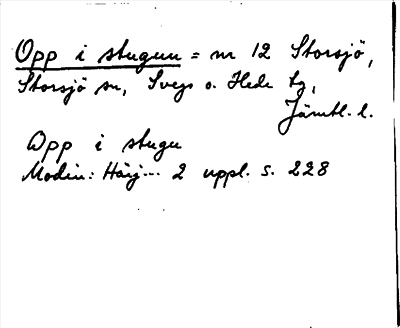 Opp i stugun = nr 12 Storsjö,
Storsjö sn, Svegs o. Hede tg,
Jämtl. l.
Opp i stugu
Modin: Härj... 2 uppl. s. 228